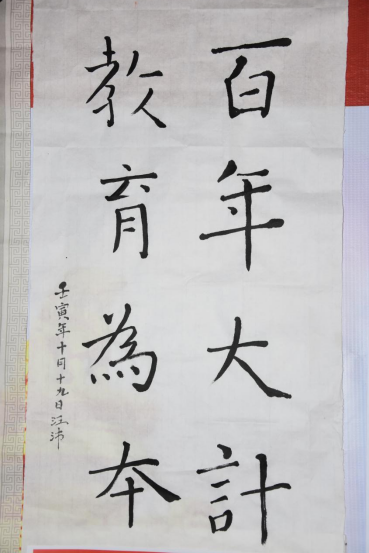 百年大計
教育為本
壬寅年十月十九日江沛